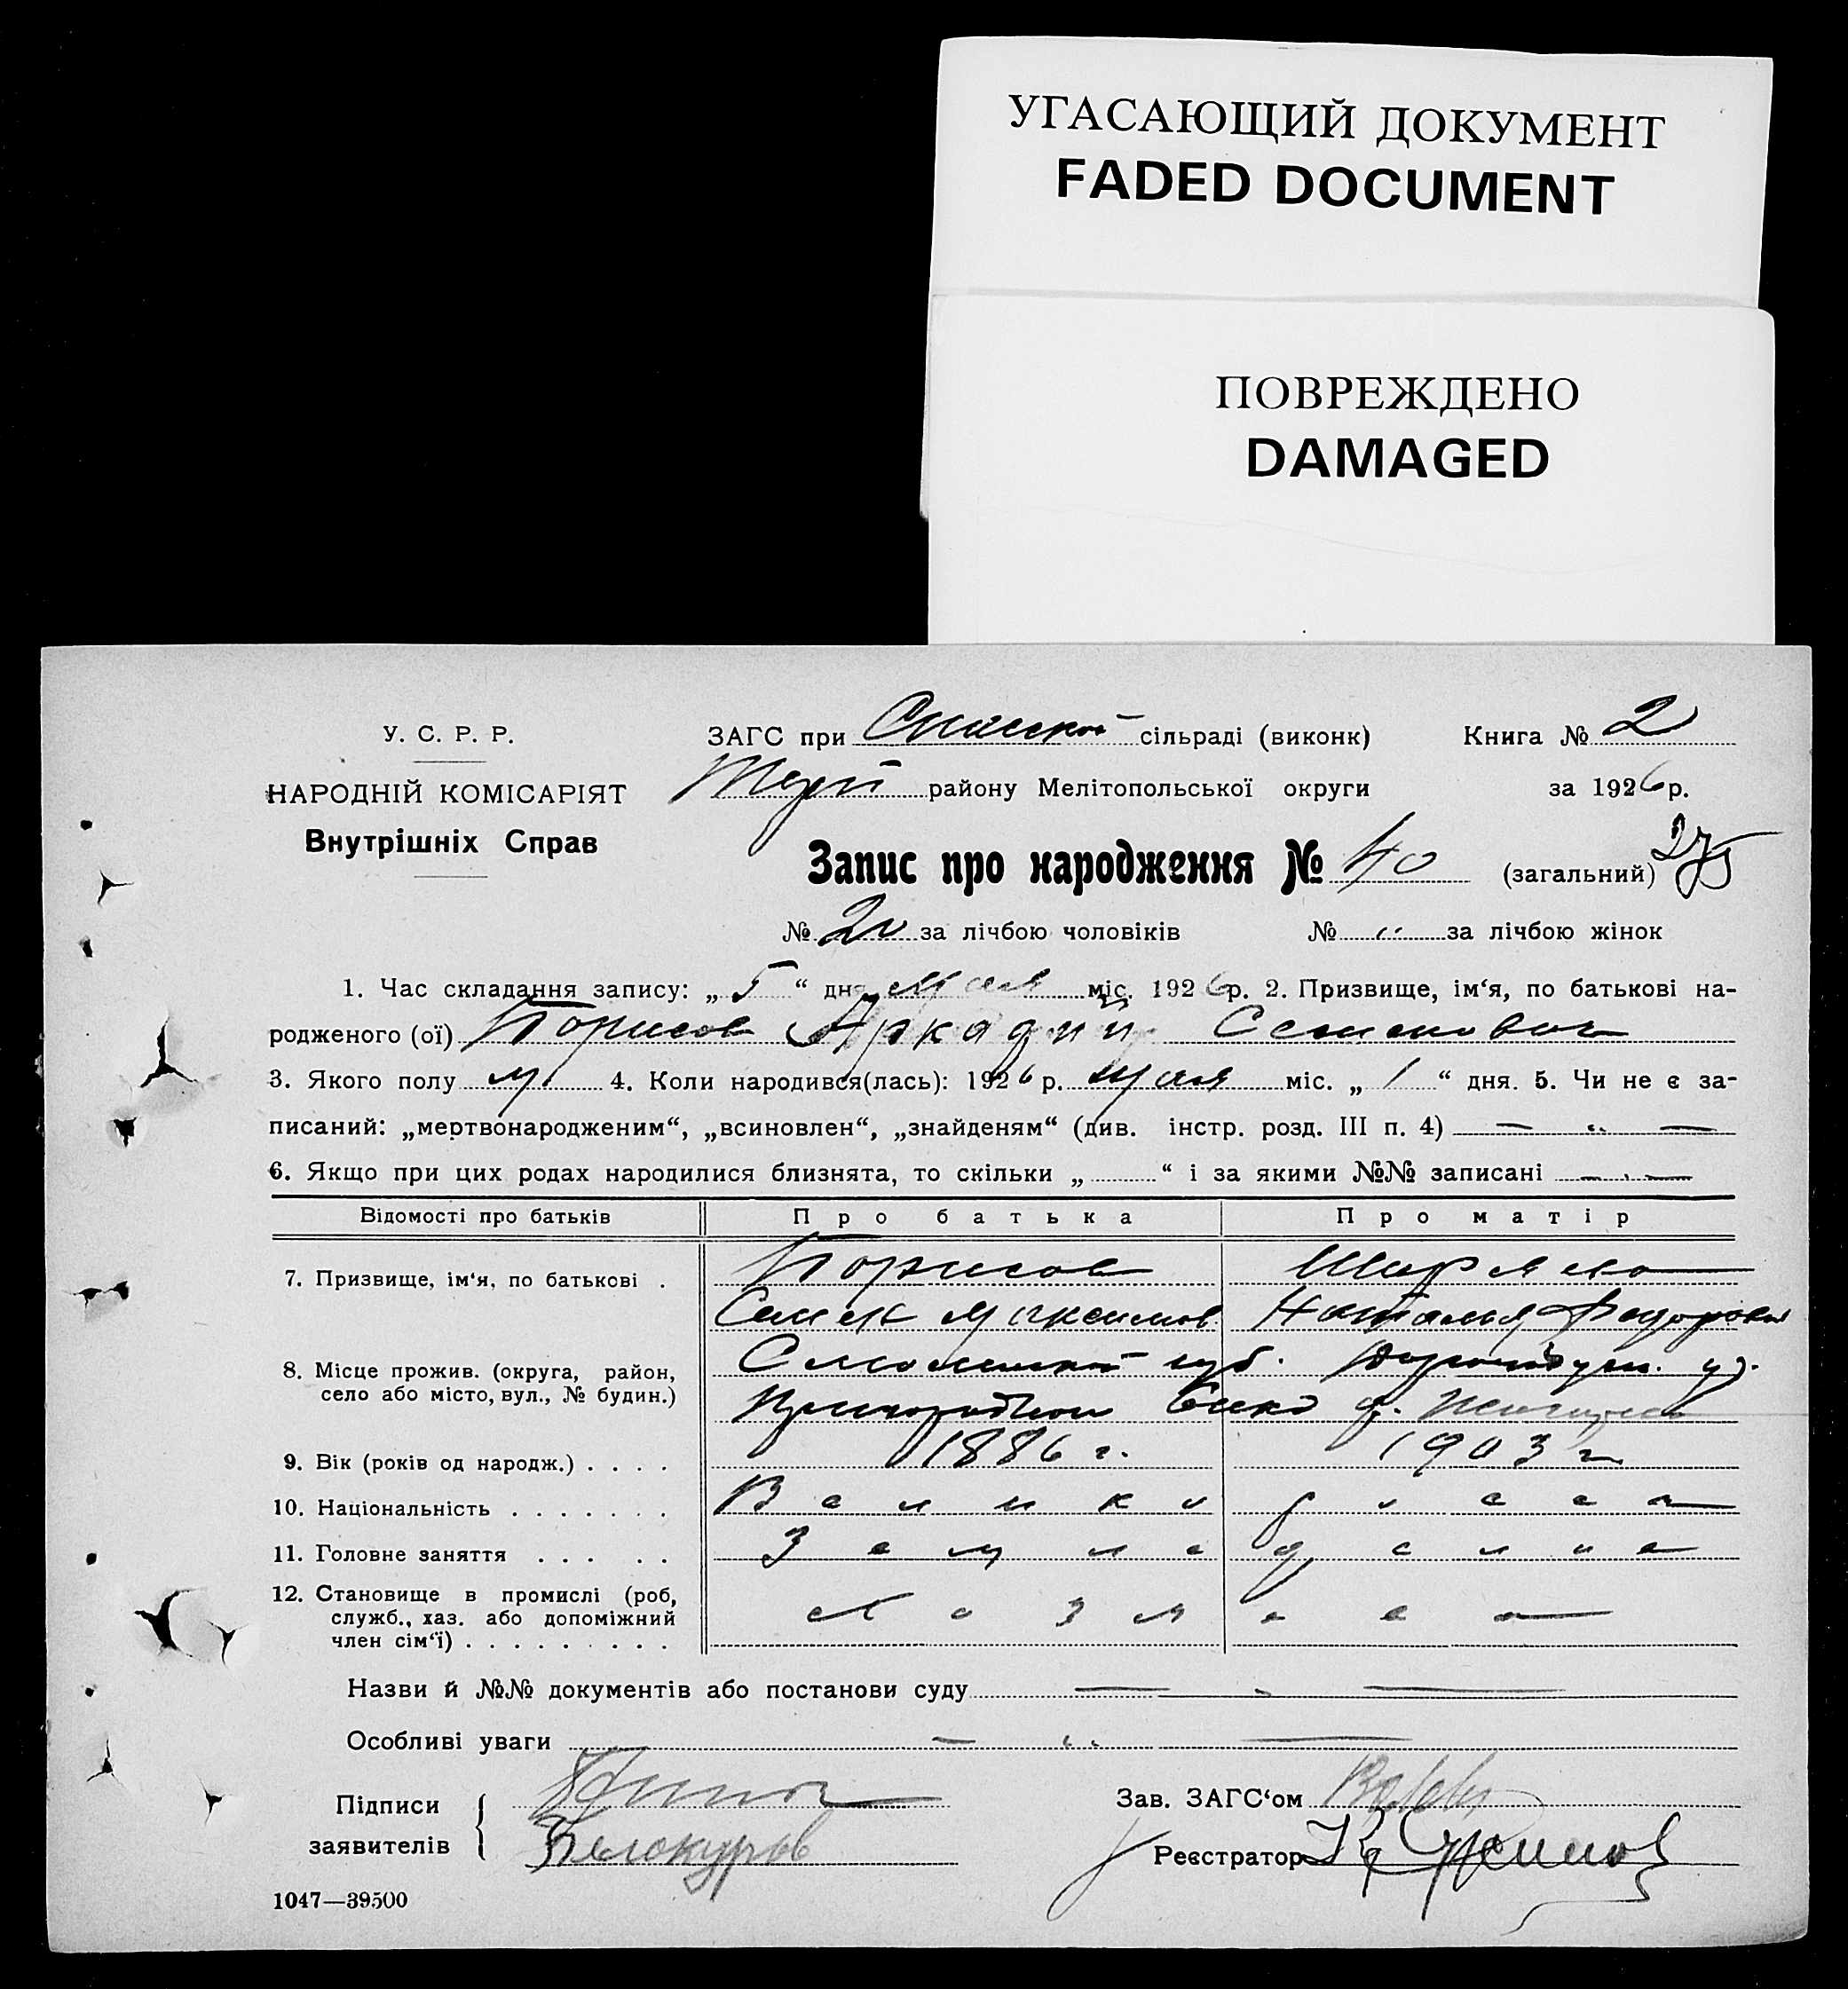 УГАСАЮЩИЙ ДОКУМЕНТ
FADED DOCUMENT
ПОВРЕЖДЕНО
DAMAGED
У. С. Р. Р.
НАРОДНІЙ КОМІСАРІЯТ
Внутрішніх Справ
ЗАГС при сільраді (виконк) Книга № 2
району Мелітопольської округи за 1926 р.
Запис про народження № 40 (загальний) 275
№ 20 за лічбою чоловіків № " за лічбою жінок
1. Час складання запису: „ 5 “ дня мая міс. 1926 р. 2. Призвище, ім‘я, по батькові на-
родженого (ої) Борисов Аркадий Семенович
3. Якого полу м. 4. Коли народився(лась): 1926 р. мая міс. „ 1 “ дня. 5. Чи не є за-
писаний: „мертвонародженим“, „всиновлен“, „знайденям“ (див. інстр. розд. III п. 4) — " —
6. Якщо при цих родах народилися близнята, то скільки „ “ і за якими №№ записані — —
Відомості про батьків Про батька Про матір
7. Призвище, ім‘я, по батькові . Борисов
Семен Максимов. Наталья Федоровна
8. Місце прожив. (округа, район,
село або місто, вул., № будин.)
Смоленской губ. Дорогобуж. у.
д.
9. Вік (років од народж.) . . . . 1886 г. 1903 г.
10. Національність . . . . . . . Великоросса
11. Головне заняття . . . . . Земледелие
12. Становище в промислі (роб,
служб., хаз. або допоміжний
член сім‘ї) . . . . . . . . . Хозяева
Назви й №№ документів або постанови суду — —
Особливі уваги — " —
Підписи
заявителів
Белокуров
Зав. ЗАГС‘ом
Реєстратор
1047—39500